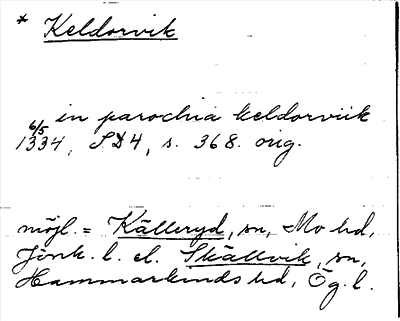 * Keldorvik
in parochia keldorviik
6/5
1334, SD4, s. 368. orig.
möjl. = Källeryd, sn, Mo hd,
Jönk. l. el. Skällvik, sn,
Hammarkinds hd, Ög. l.